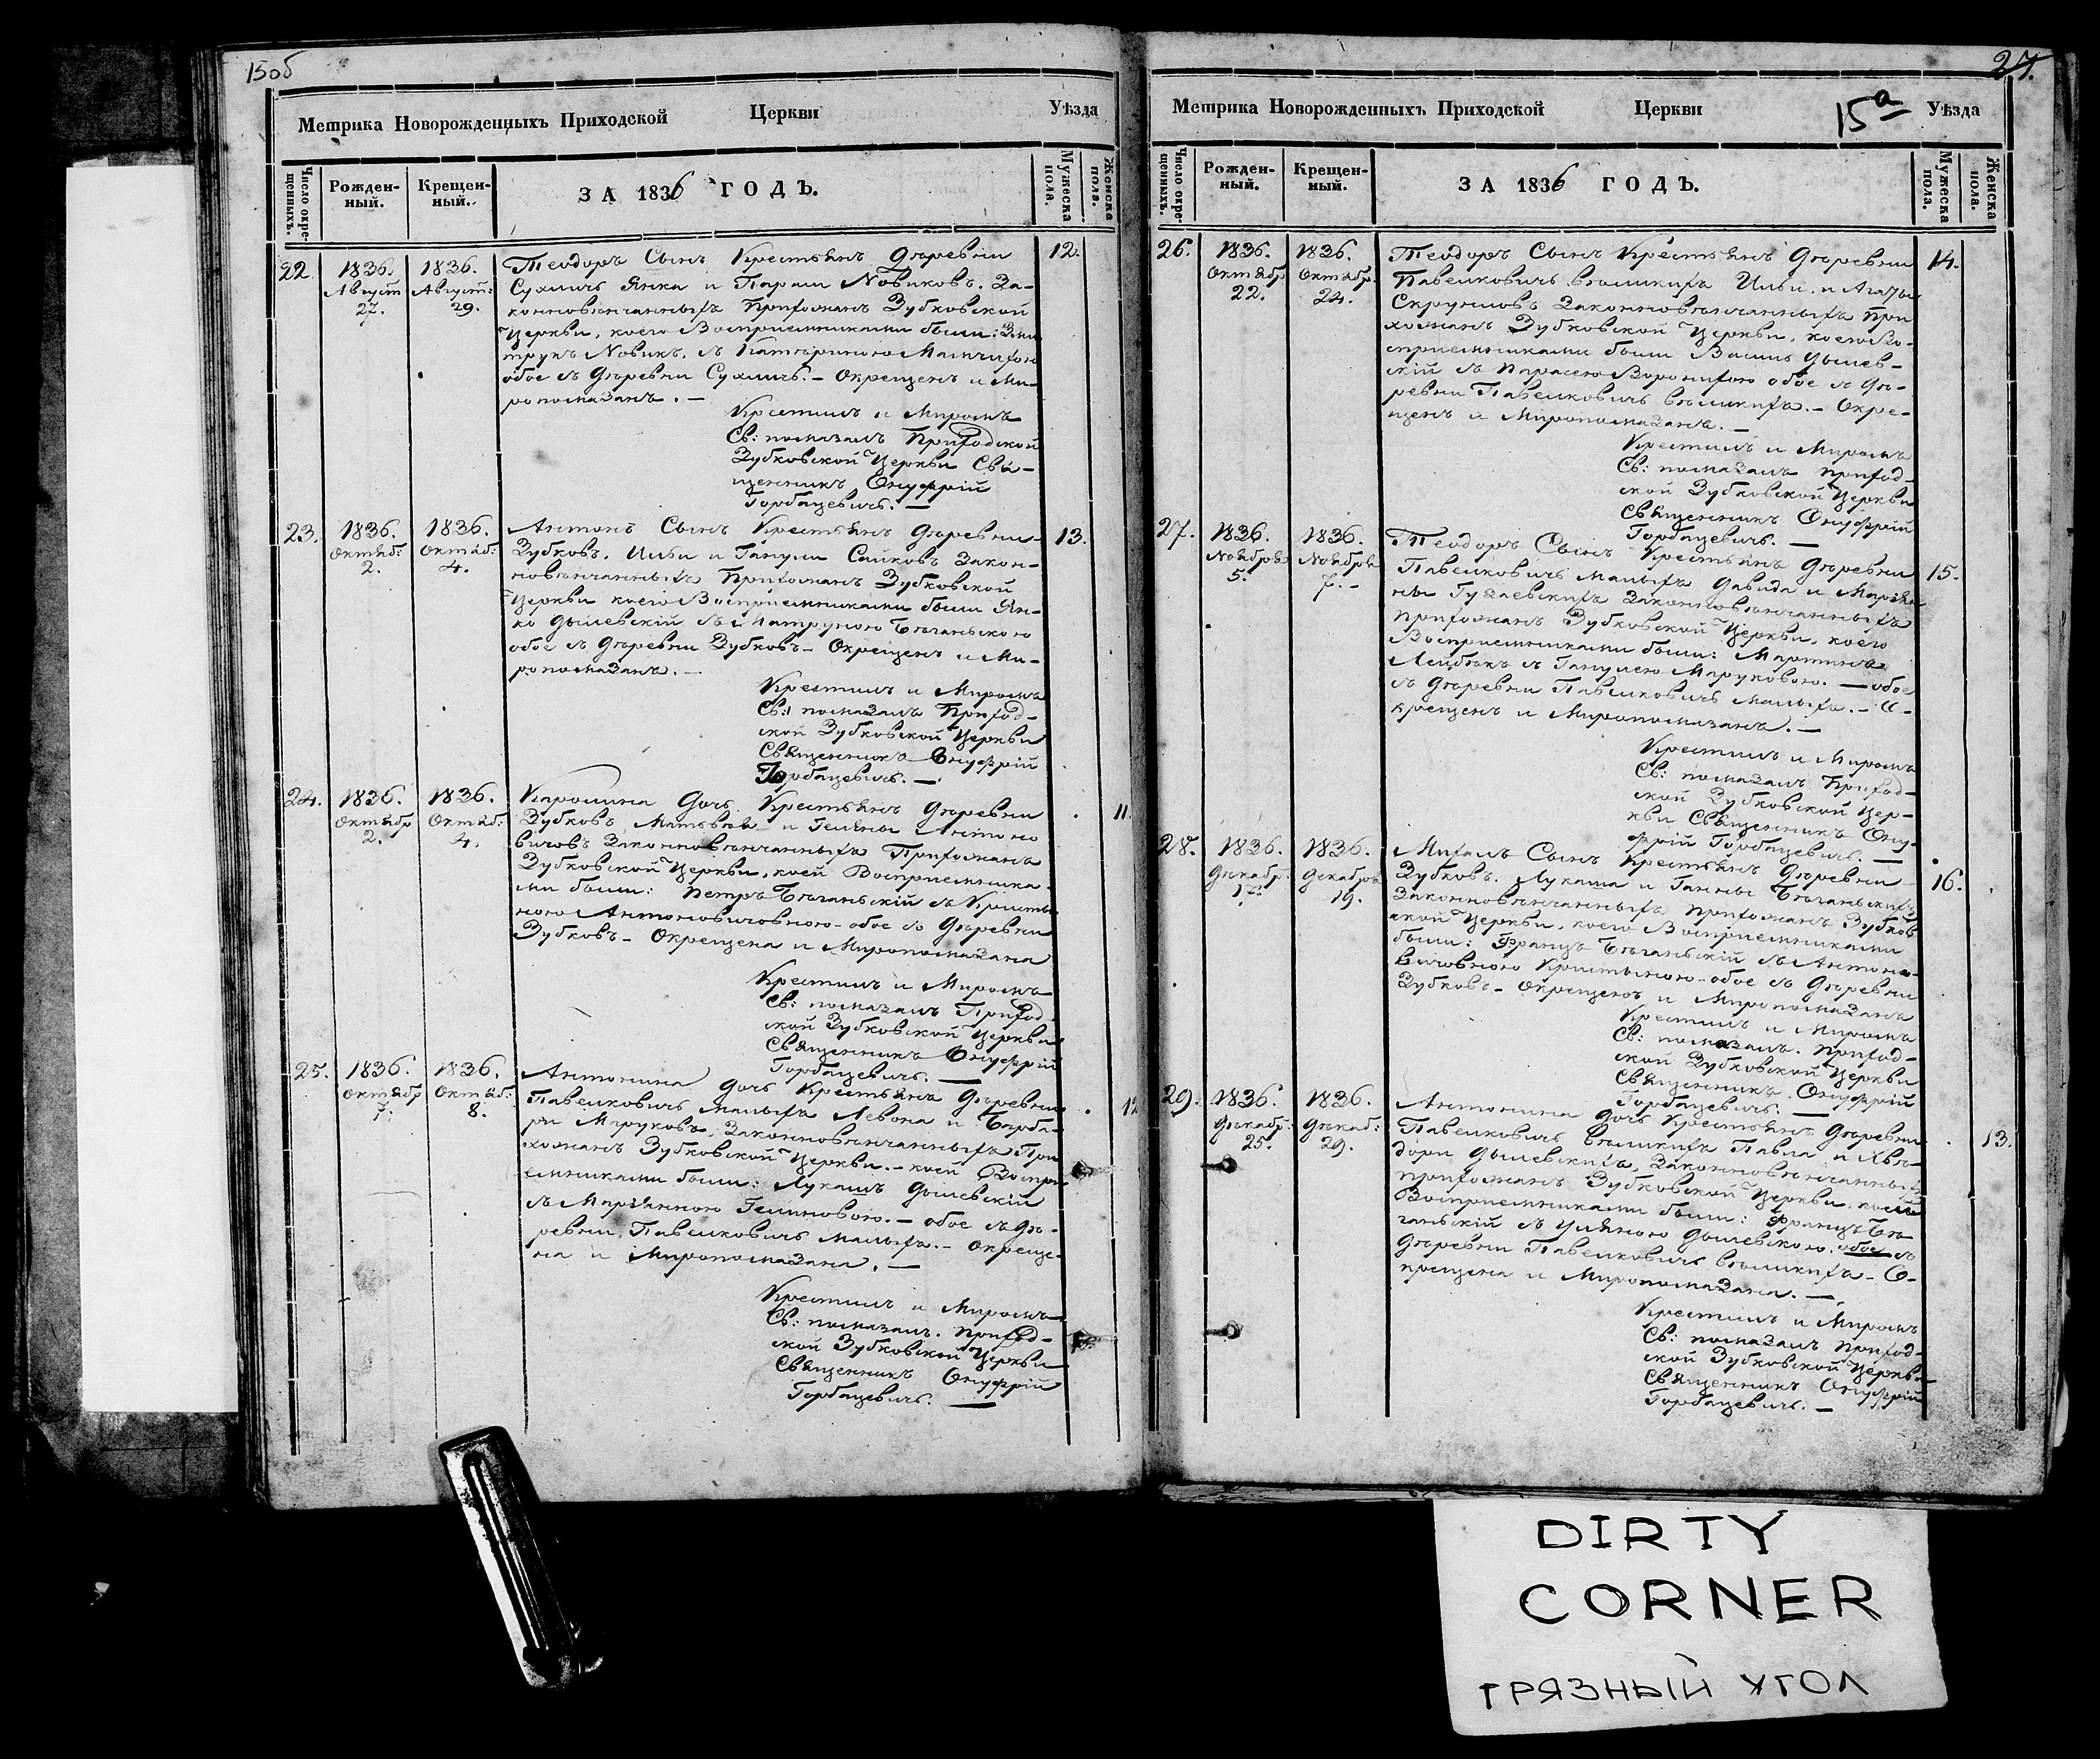 15об
Метрика Новорожденныхъ Приходской Церкви Уѣзда
Число окре-
щенныхъ.
Рожден-
ный.
Крещен-
ный.
ЗА 1836 ГОДЪ.
Мужеска
пола.
Женска
пола.
22. 1836. Август 27. 1836. Август: 29. 12.
Теодоръ Сынъ Крестьянъ Дѣревни
Сухличь Янка и Параси Новиковъ. За-
конновѣнчанныхъ Прихожанъ Зубковской
Церкви, коего Восприемниками были: Зми
трукъ Новикъ, съ Катериною
обое съ Дѣревни Сухличь. – Окрещенъ и Ми-
ропомазанъ. –
Крестилъ и Миромъ
Св: помазалъ Приходской
Зубковской Церкви Свя-
щенникъ Онуфрій
Горбацевичъ. –
23. 1836. Октяб: 2. 1836. Октяб: 4. 13.
Антонъ Сынъ Крестьянъ Дѣревни
Зубковъ. Ильи и Ганули Сайковъ Закон-
новѣнчанныхъ Прихожанъ Зубковской
Церкви коего Восприемниками были Ян-
ко Дылевскій съ Матруною Бѣганською
обое съ Дѣревни Зубковъ – Окрещенъ и Ми-
ропомазанъ. –
Крестилъ и Миромъ
Св: помазалъ Приход-
ской Зубковской Церкви
Священникъ Онуфрій
Горбацевичъ. –
24. 1836. Октябр 2. 1836. Октяб: 4. 11.
Каролина Дочь Крестьянъ Дѣревни
Зубковъ Матвѣя и Гелены Антоно
вичовъ Законновѣнчанныхъ Прихожанъ
Зубковской Церкви, коей Восприемника-
ми были: Петръ Бѣганьскій съ Кристы-
ною Антоновичовною – обое съ Дѣревни
Зубковъ – Окрещена и Миропомазана
Крестилъ и Миромъ
Св: помазалъ Приход-
ской Зубковской Церкви
Священникъ Онуфрій
Горбацевичъ. –
25. 1836. Октябр 7. 1836. Октяб: 8. 12
Антонина Дочь Крестьянъ Дѣревни
Павелковичь малыхъ Левона и Барба-
ри Маруковъ, Законновѣнчанныхъ При
хожанъ Зубковской Церкви. – коей Воспри
емниками были: Лукашъ Дылевскій
съ Маріянною Гелиновою. – обое съ Дѣ-
ревни Павелковичь малыхъ. – Окреще-
на и Миропомазана. –
Крестилъ и Миромъ
Св: помазалъ. Приход-
ской Зубковской Церкви
Священникъ Онуфрій
Горбацевичъ. –
27.
15а
Метрика Новорожденныхъ Приходской Церкви Уѣзда
Число окре-
щенныхъ.
Рожден-
ный.
Крещен-
ный.
ЗА 1836 ГОДЪ.
Мужеска
пола.
Женска
пола.
26. 1836. Октябр 22. 1836. Октябр. 24. 14.
Теодоръ Сынъ Крестьянъ Дѣревни
Павелковичь вѣликихъ Ильи и Агафьи
Скрунловъ Законновѣнчанныхъ При
хожанъ Зубковской Церкви, коего Во-
сприемниками были Василь Дылев-
скій съ Парасею Воронихою обое съ Дѣ-
ревни Павелковичь вѣликихъ. – Окре-
щенъ и Миропомазанъ. –
Крестилъ и Миромъ
Св: помазалъ Приход-
ской Зубковской Церкви
Священникъ Онуфрій
Горбацевичъ. –
27. 1836. Ноября 5. 1836. Ноября 7. – 15.
Теодоръ Сынъ Крестьянъ Дѣревни
Павелковичь малыхъ Давида и Маріян
ны Гулаевскихъ Законновѣнчанныхъ
Прихожанъ Зубковской Церкви, коего
Восприемниками были: Мартинъ
съ Ганулею Маруковою. – обое
съ Дѣревни Павелковичь малыхъ. – О-
крещенъ и Миропомазанъ. –
Крестилъ и Миромъ
Св: помазалъ Приход-
ской Зубковской Цер-
кви Священникъ Ону-
фрій Горбацевичъ. –
28. 1836. Дѣкабр: 17. 1836. Декабря 19. 16.
Михалъ Сынъ Крестьянъ Дѣревни
Зубковъ. Лукаша и Ганны Бѣганьскихъ
Законновѣнчанныхъ Прихожанъ Зубков
ской Церкви, коего Восприемниками
были: Францъ Бѣганьскій съ Антоно-
вичовною Кристыною – обое съ Дѣревни
Зубковъ – Окрещенъ и Миропомазанъ
Крестилъ и Миромъ
Св: помазалъ. Приход-
ской Зубковской Церкви
Священникъ Онуфрій
Горбацевичъ. –
29. 1836. Дѣкабр: 25. 1836. Дѣкаб: 29. 13.
Антонина Дочь Крестьянъ Дѣревни
Павелковичь вѣликихъ Павла и Хвѣ-
дори Дылевскихъ, Законновѣнчанныхъ
Прихожанъ Зубковской Церкви, коей
Восприемниками были: Францъ Бѣ-
ганьскій съ Ульяною Дылевскою. обое съ
Дѣревни Павелковичь вѣликихъ – О-
крещена и Миропомазана. –
Крестилъ и Миромъ
Св: помазалъ Приход-
ской Зубковской Церкви
Священникъ Онуфрій
Горбацевичъ. –
DIRTY
CORNER
ГРЯЗНЫЙ УГОЛ